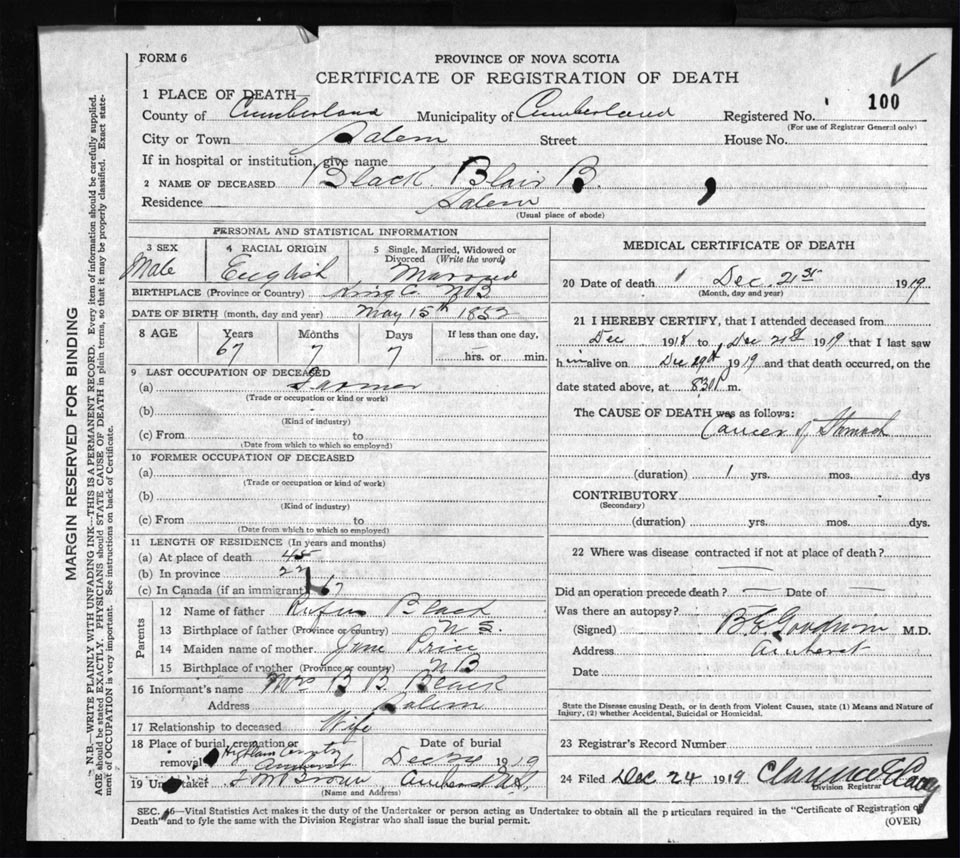 FORM 6
PROVINCE OF NOVA SCOTIA
CERTIFICATE OF REGISTRATION OF DEATH
1 PLACE OF DEATH—
County of Cumberland Municipality of Cumberland Registered No. 100
(For use of Registrar General only)
City or Town Salem Street House No.
If in hospital or institution, give name
2 NAME OF DECEASED Black Blair B.
Residence Salem
(Usual place of abode)
PERSONAL AND STATISTICAL INFORMATION
3 SEX Male
4 RACIAL ORIGIN English
5 Single, Married, Widowed or Divorced (Write the word) Married
BIRTHPLACE (Province or Country) King Co NB
DATE OF BIRTH (month, day and year) May 15th 1852
8 AGE Years Months Days If less than one day,
67 7 7 hrs. or min.
9 LAST OCCUPATION OF DECEASED
(a) Farmer
(Trade or occupation or kind or work)
(b)
(Kind of industry)
(c) From to
(Date from which to which so employed)
10 FORMER OCCUPATION OF DECEASED
(a)
(Trade or occupation or kind of work)
(b)
(Kind of industry)
(c) From to
(Date from which to which so employed)
11 LENGTH OF RESIDENCE (In years and months)
(a) At place of death 45
(b) In province
(c) In Canada (if an immigrant) 67
Parents
12 Name of father Rufus Black
13 Birthplace of father (Province or country) N S.
14 Maiden name of mother Jane Price
15 Birthplace of mother (Province or country) N B
16 Informant's name Mrs B B. Black
Address Salem
17 Relationship to deceased Wife
18 Place of burial, cremation or removal Amherst Date of burial Dec 24 1919
19 Undertaker Brown Amherst N.S.
(Name and Address)
MEDICAL CERTIFICATE OF DEATH
20 Date of death Dec. 21st 1919
(Month, day and year)
21 I HEREBY CERTIFY, that I attended deceased from
Dec 1918 to Dec 21st 1919 that I last saw
h im alive on Dec 1919 and that death occurred, on the
date stated above, at m.
The CAUSE OF DEATH was as follows:
Cancer of Stomach
(duration) 1 yrs. mos. dys
CONTRIBUTORY
(Secondary)
(duration) yrs. mos. dys.
22 Where was disease contracted if not at place of death?
Did an operation precede death? — Date of —
Was there an autopsy?
(Signed) B.E. Goodwin M.D.
Address Amherst
Date
State the Disease causing Death, or in death from Violent Causes, state (1) Means and Nature of
Injury, (2) whether Accidental, Suicidal or Homicidal.
23 Registrar's Record Number
24 Filed Dec 24 1919 Clarence
Division Registrar
SEC. 16—Vital Statistics Act makes it the duty of the Undertaker or person acting as Undertaker to obtain all the particulars required in the "Certificate of Registration of
Death" and to fyle the same with the Division Registrar who shall issue the burial permit.
(OVER)
MARGIN RESERVED FOR BINDING
N.B.—WRITE PLAINLY WITH UNFADING INK—THIS IS A PERMANENT RECORD. Every item of information should be carefully supplied.
AGE should be stated EXACTLY. PHYSICIANS should STATE CAUSE OF DEATH in plain terms, so that it may be properly classified. Exact state-
ment of OCCUPATION is very important. See instructions on back of Certificate.